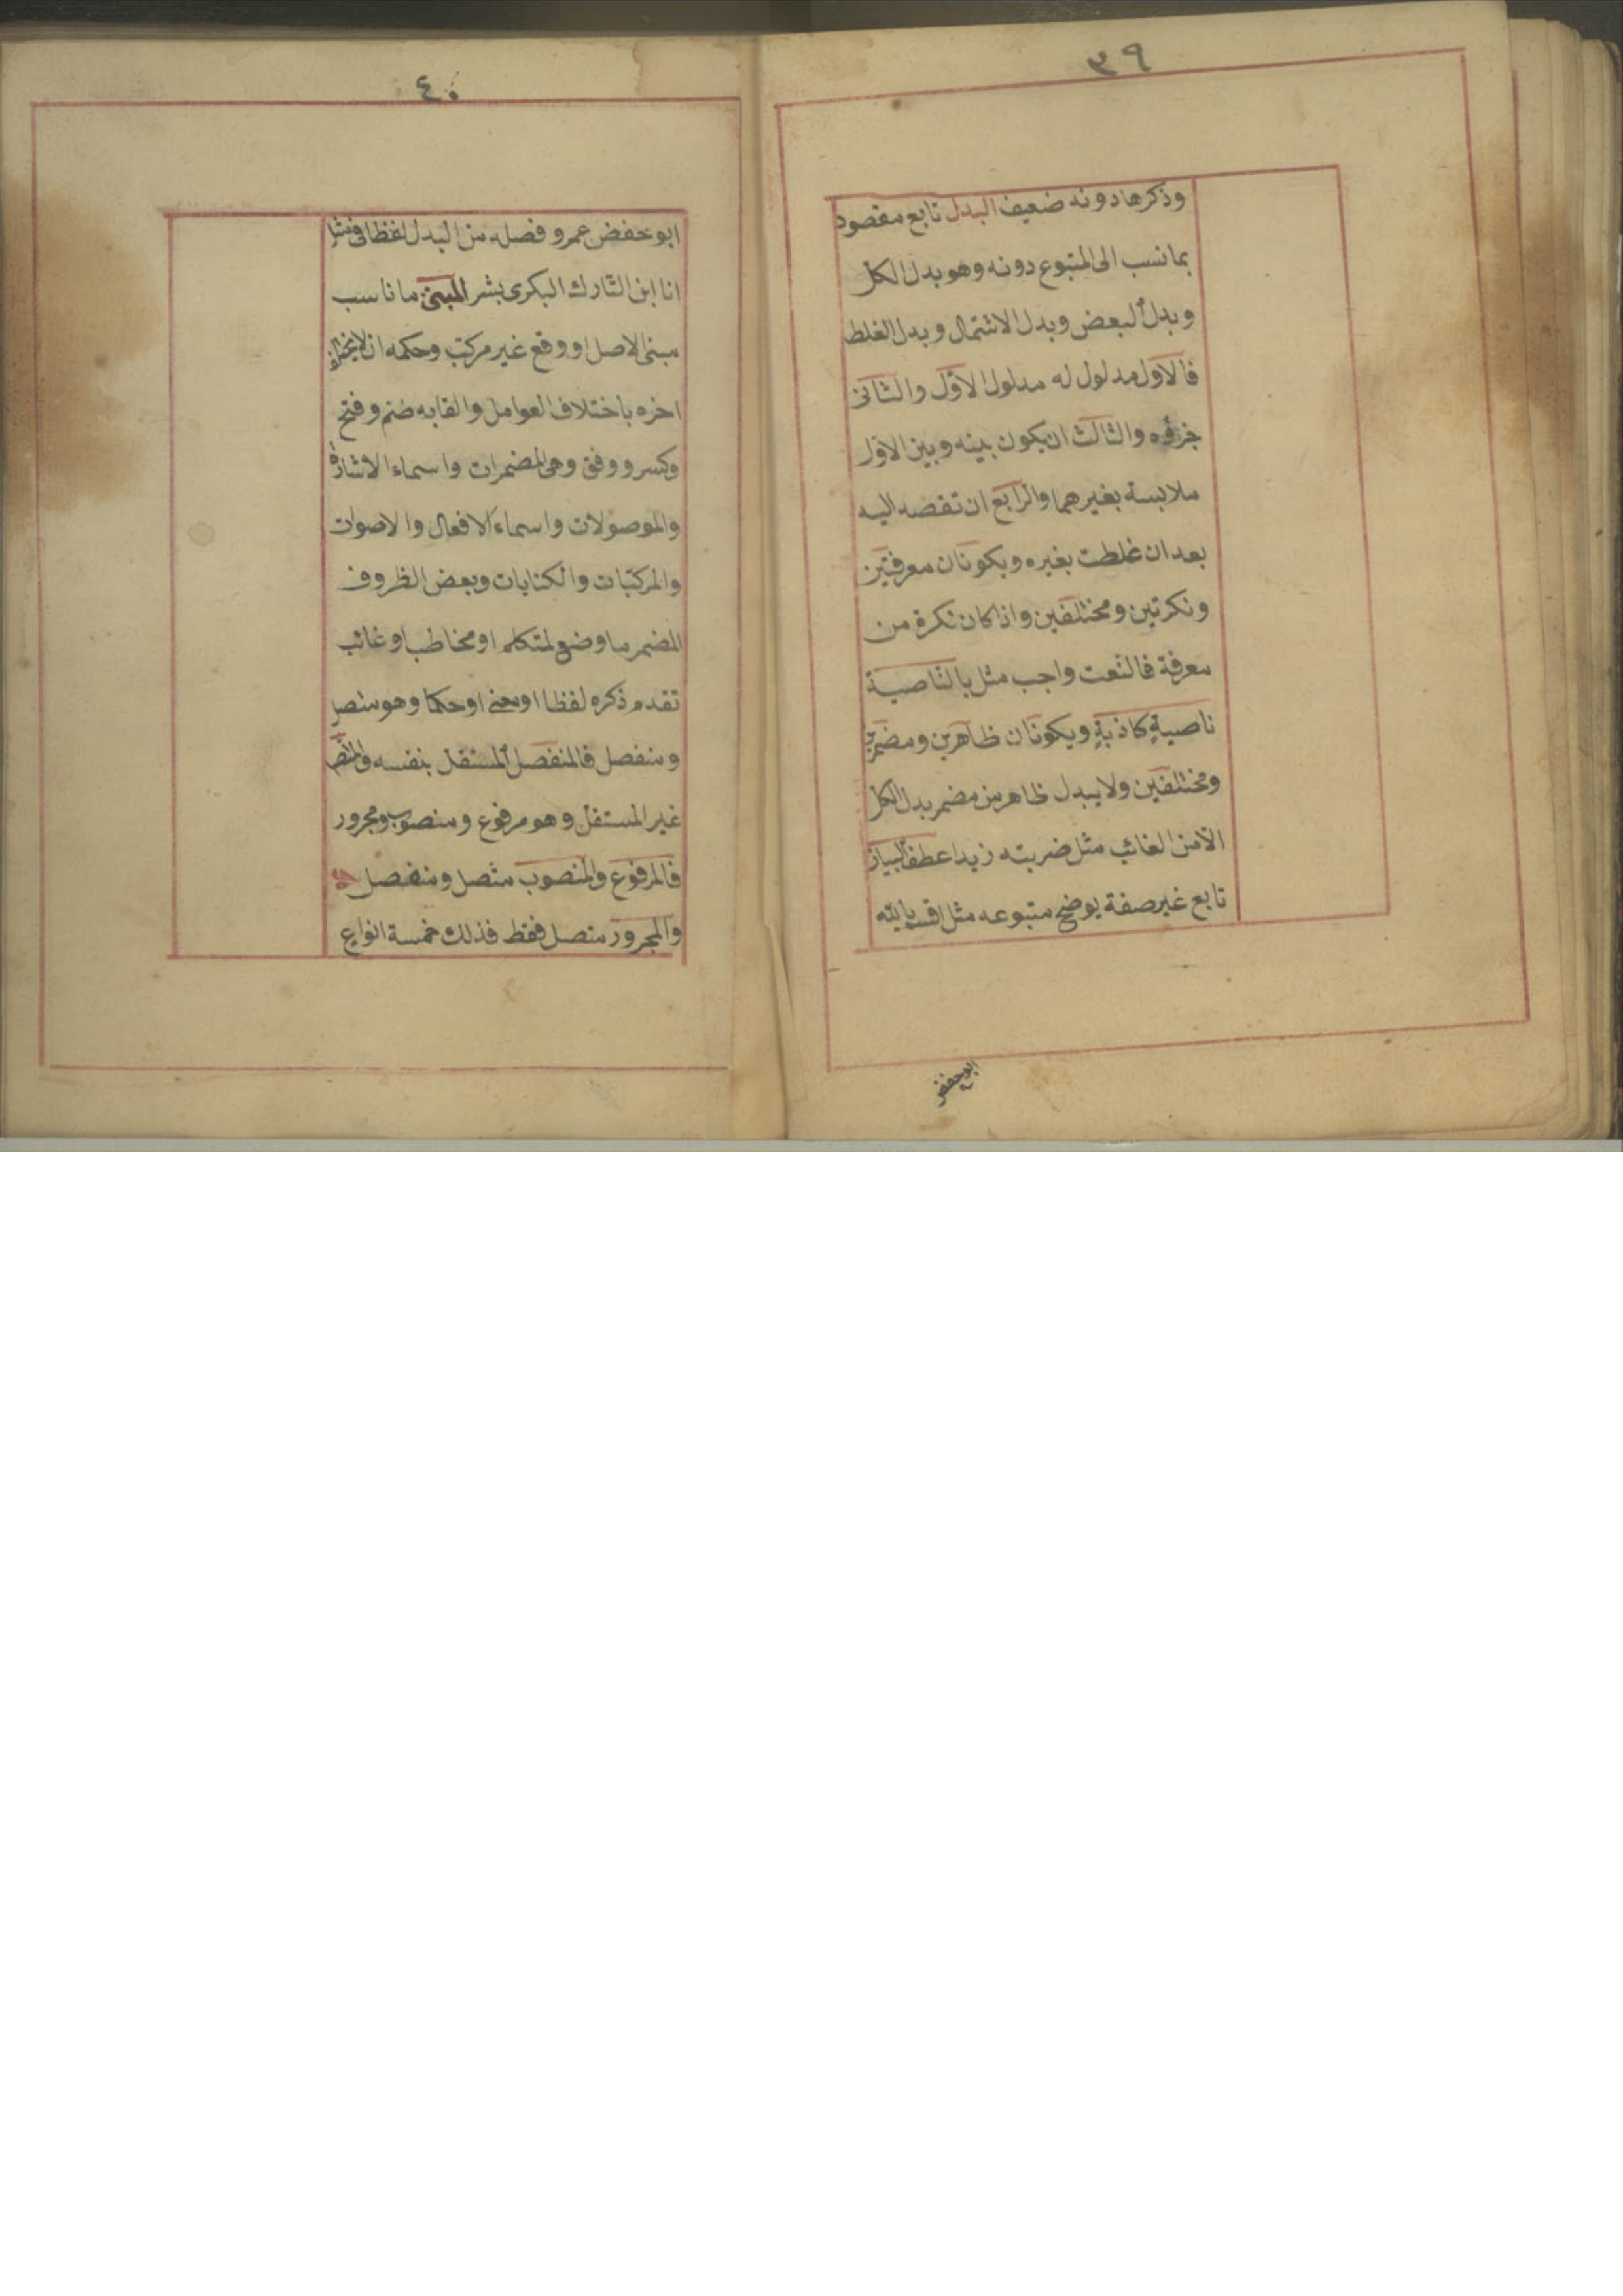 ٣٩
وذكرها دونه ضعيف البدل تابع مقصود
بما نسب الى المتبوع دونه وهو بدل الكل
وبدل البعض وبدل الاشتمال وبدل الغلط
فالاول مدلوله مدلول الاول والثانى
جزؤه والثالث ان يكون بينه وبين الاول
ملابسة بغيرهما والرابع ان تقصد اليه
بعد ان غلطت بغيره ويكونان معرفتين
ونكرتين ومختلفين واذا كان نكرة من
معرفة فالنعت واجب مثل بالناصية
ناصيةٍ كاذبةٍ ويكونان ظاهرين ومضمرين
ومختلفين ولا يبدل ظاهر من مضمر بدل الكل
الا من الغائب مثل ضربته زيدا عطف البيان
تابع غير صفة يوضح متبوعه مثل اقسم بالله
ابو حفص
٤٠
ابو حفض عمرو فصله من البدل لفظا فى مثل
انا ابن التارك البكرى بشر المبنى ما ناسب
مبنى الاصل او وقع غير مركب وحكمه ان لا يختلف
اخره باختلاف العوامل والقابه ضم وفتح
وكسر ووقف وهى المضمرات واسماء الاشارة
والموصولات واسماء الافعال والاصوات
والمركبات والكنايات وبعض الظروف
المضمر ما وضع لمتكلم او مخاطب او غائب
تقدم ذكره لفظا او معنى او حكما وهو متصل
ومنفصل فالمنفصل المستقل بنفسه والمتصل
غير المستقل وهو مرفوع ومنصوب ومجرور
فالمرفوع والمنصوب متصل ومنفصل
والمجرور متصل فقط فذلك خمسة انواع